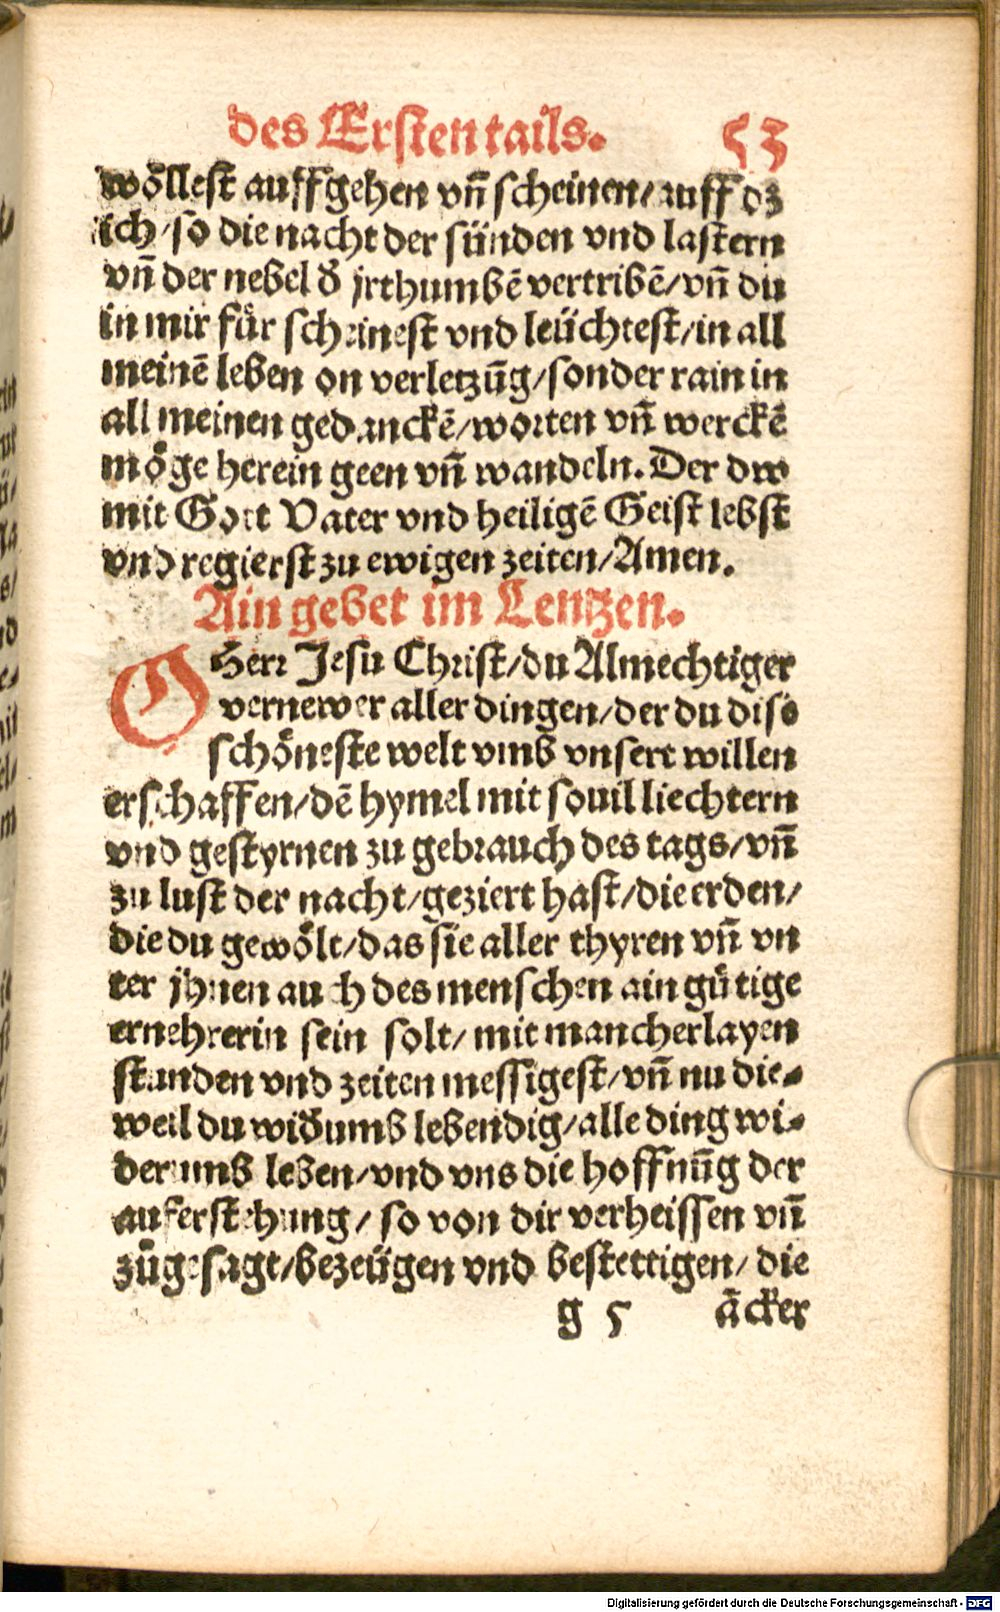 des Ersten tails. 53
wöllest auffgehen vn̄ scheinen/ auff dz
ich/ so die nacht der sünden vnd lastern
vn̄ der nebel ð jrthumbē vertribē/ vn̄ du
in mir für scheinest vnd leüchtest/ in all
meinē leben on verletzūg/ sonder rain in
all meinen gedanckē/ worten vn̄ werckē
möge herein geen vn̄ wandeln. Der dw
mit Gott Vater vnd heiligē Geist lebst
vnd regierst zu ewigen zeiten/ Amen.
Ain gebet im Lentzen.
O Herr Jesu Christ/ du Almechtiger
vernewer aller dingen/ der du dise
schöneste welt vmb vnsert willen
erschaffen/ dē hymel mit souil liechtern
vnd gestyrnen zu gebrauch des tags/ vn̄
zu lust der nacht/ geziert hast/ die erden/
die du gewölt/ das sie aller thyren vn̄ vn
ter jhnen auch des menschen ain gütige
ernehrerin sein solt/ mit mancherlayen
stunden vnd zeiten messigest/ vn̄ nu die-
weil du wiðumb lebendig/ alle ding wi-
derumb leben/ vnd vns die hoffnūg der
auferstehung/ so von dir verheissen vn̄
zůgesagt/ bezeügen vnd bestettigen/ die
g 5 äcker
Digitalisierung gefördert durch die Deutsche Forschungsgemeinschaft - DFG